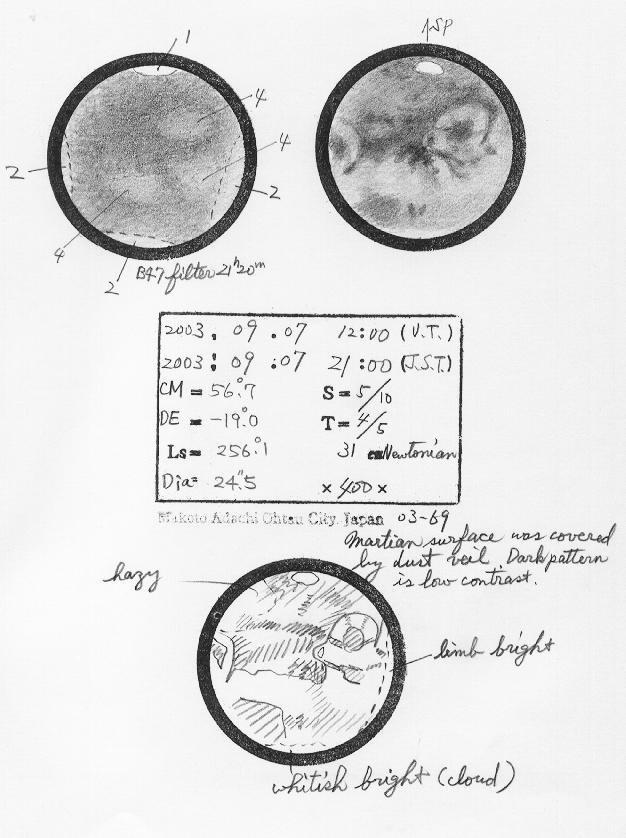 1
↑SP
4
4
2
2
4
2
B47 filter 21ʰ20ᵐ
2003. 09 .07 12:00 (U.T.)
2003: 09 :07 21:00 (J.S.T)
CM = 56.°7 S = 5/10
DE = -19.°0 T = 4/5
Ls= 256.°1 31 cm Newtonian
Dia= 24."5 × 400 ×
Makoto Adachi Ohtsu City. Japan 03-69
Martian surface was covered
by dust veil. Dark pattern
is low contrast.
hazy
limb bright
whitish bright (cloud)